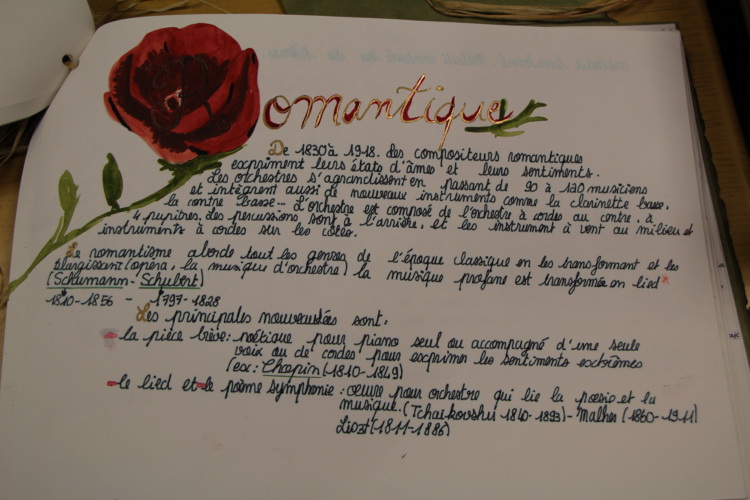 Romantique
De 1830 à 1918. des compositeurs romantiques
expriment leurs états d'âmes et leurs sentiments.
Les orchestres s'agrandissent en passant de 90 à 130 musiciens
et intègrent aussi de nouveaux instruments comme la clarinette basse,
la contre basse... L'orchestre est composé de l'orchestre à cordes au centre, à
4 pupitres, des percussions sont à l'arrière, et les instrument à vent au milieu et
instruments à cordes sur les côtés.
Le romantisme aborde tout les genres de l'époque classique en les transformant et les
élargissant (opéra, la musique d'orchestre) la musique profane est transformée en lied*
(Schumann - Schubert)
1810-1856 - 1797-1828
Les principales nouveautées sont:
la pièce brève: poétique pour piano seul ou accompagné d'une seule
voix ou de cordes pour exprimer les sentiments extrêmes
(ex: Chopin (1810-1849)
le lied et le poème symphonie: œuvre pour orchestre qui lie la poésie et la
musique. (Tchaikovshi 1840-1893) - Malher (1860-1911)
Liszt (1811-1886)